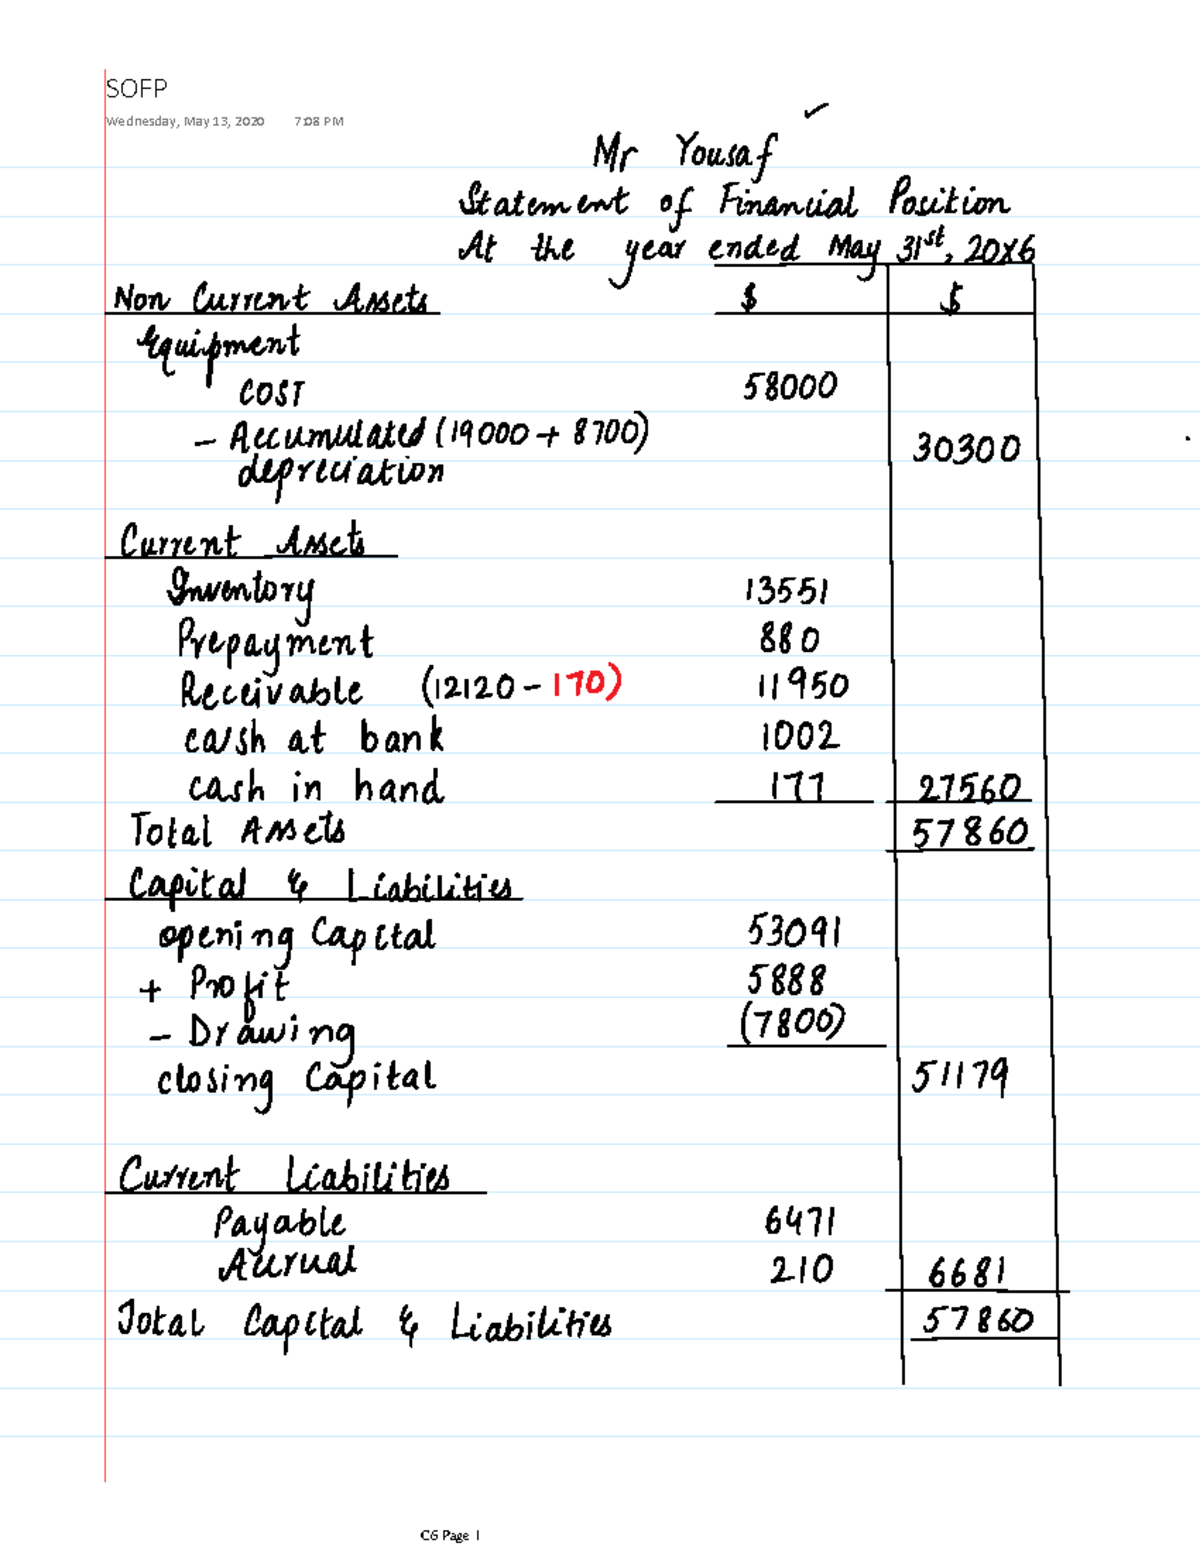 SOFP
Wednesday, May 13, 2020 7:08 PM
Mr Yousaf
Statement of Financial Position
At the year ended May 31st, 20X6
Non Current Assets $ $
Equipment
COST 58000
- Accumulated (19000 + 8700) 30300
depreciation
Current Assets
Inventory 13551
Prepayment 880
Receivable (12120 - 170) 11950
cash at bank 1002
cash in hand 177 27560
Total Assets 57860
Capital & Liabilities
opening Capital 53091
+ Profit 5888
- Drawing (7800)
closing Capital 51179
Current Liabilities
Payable 6471
Accrual 210 6681
Total Capital & Liabilities 57860
CG Page 1